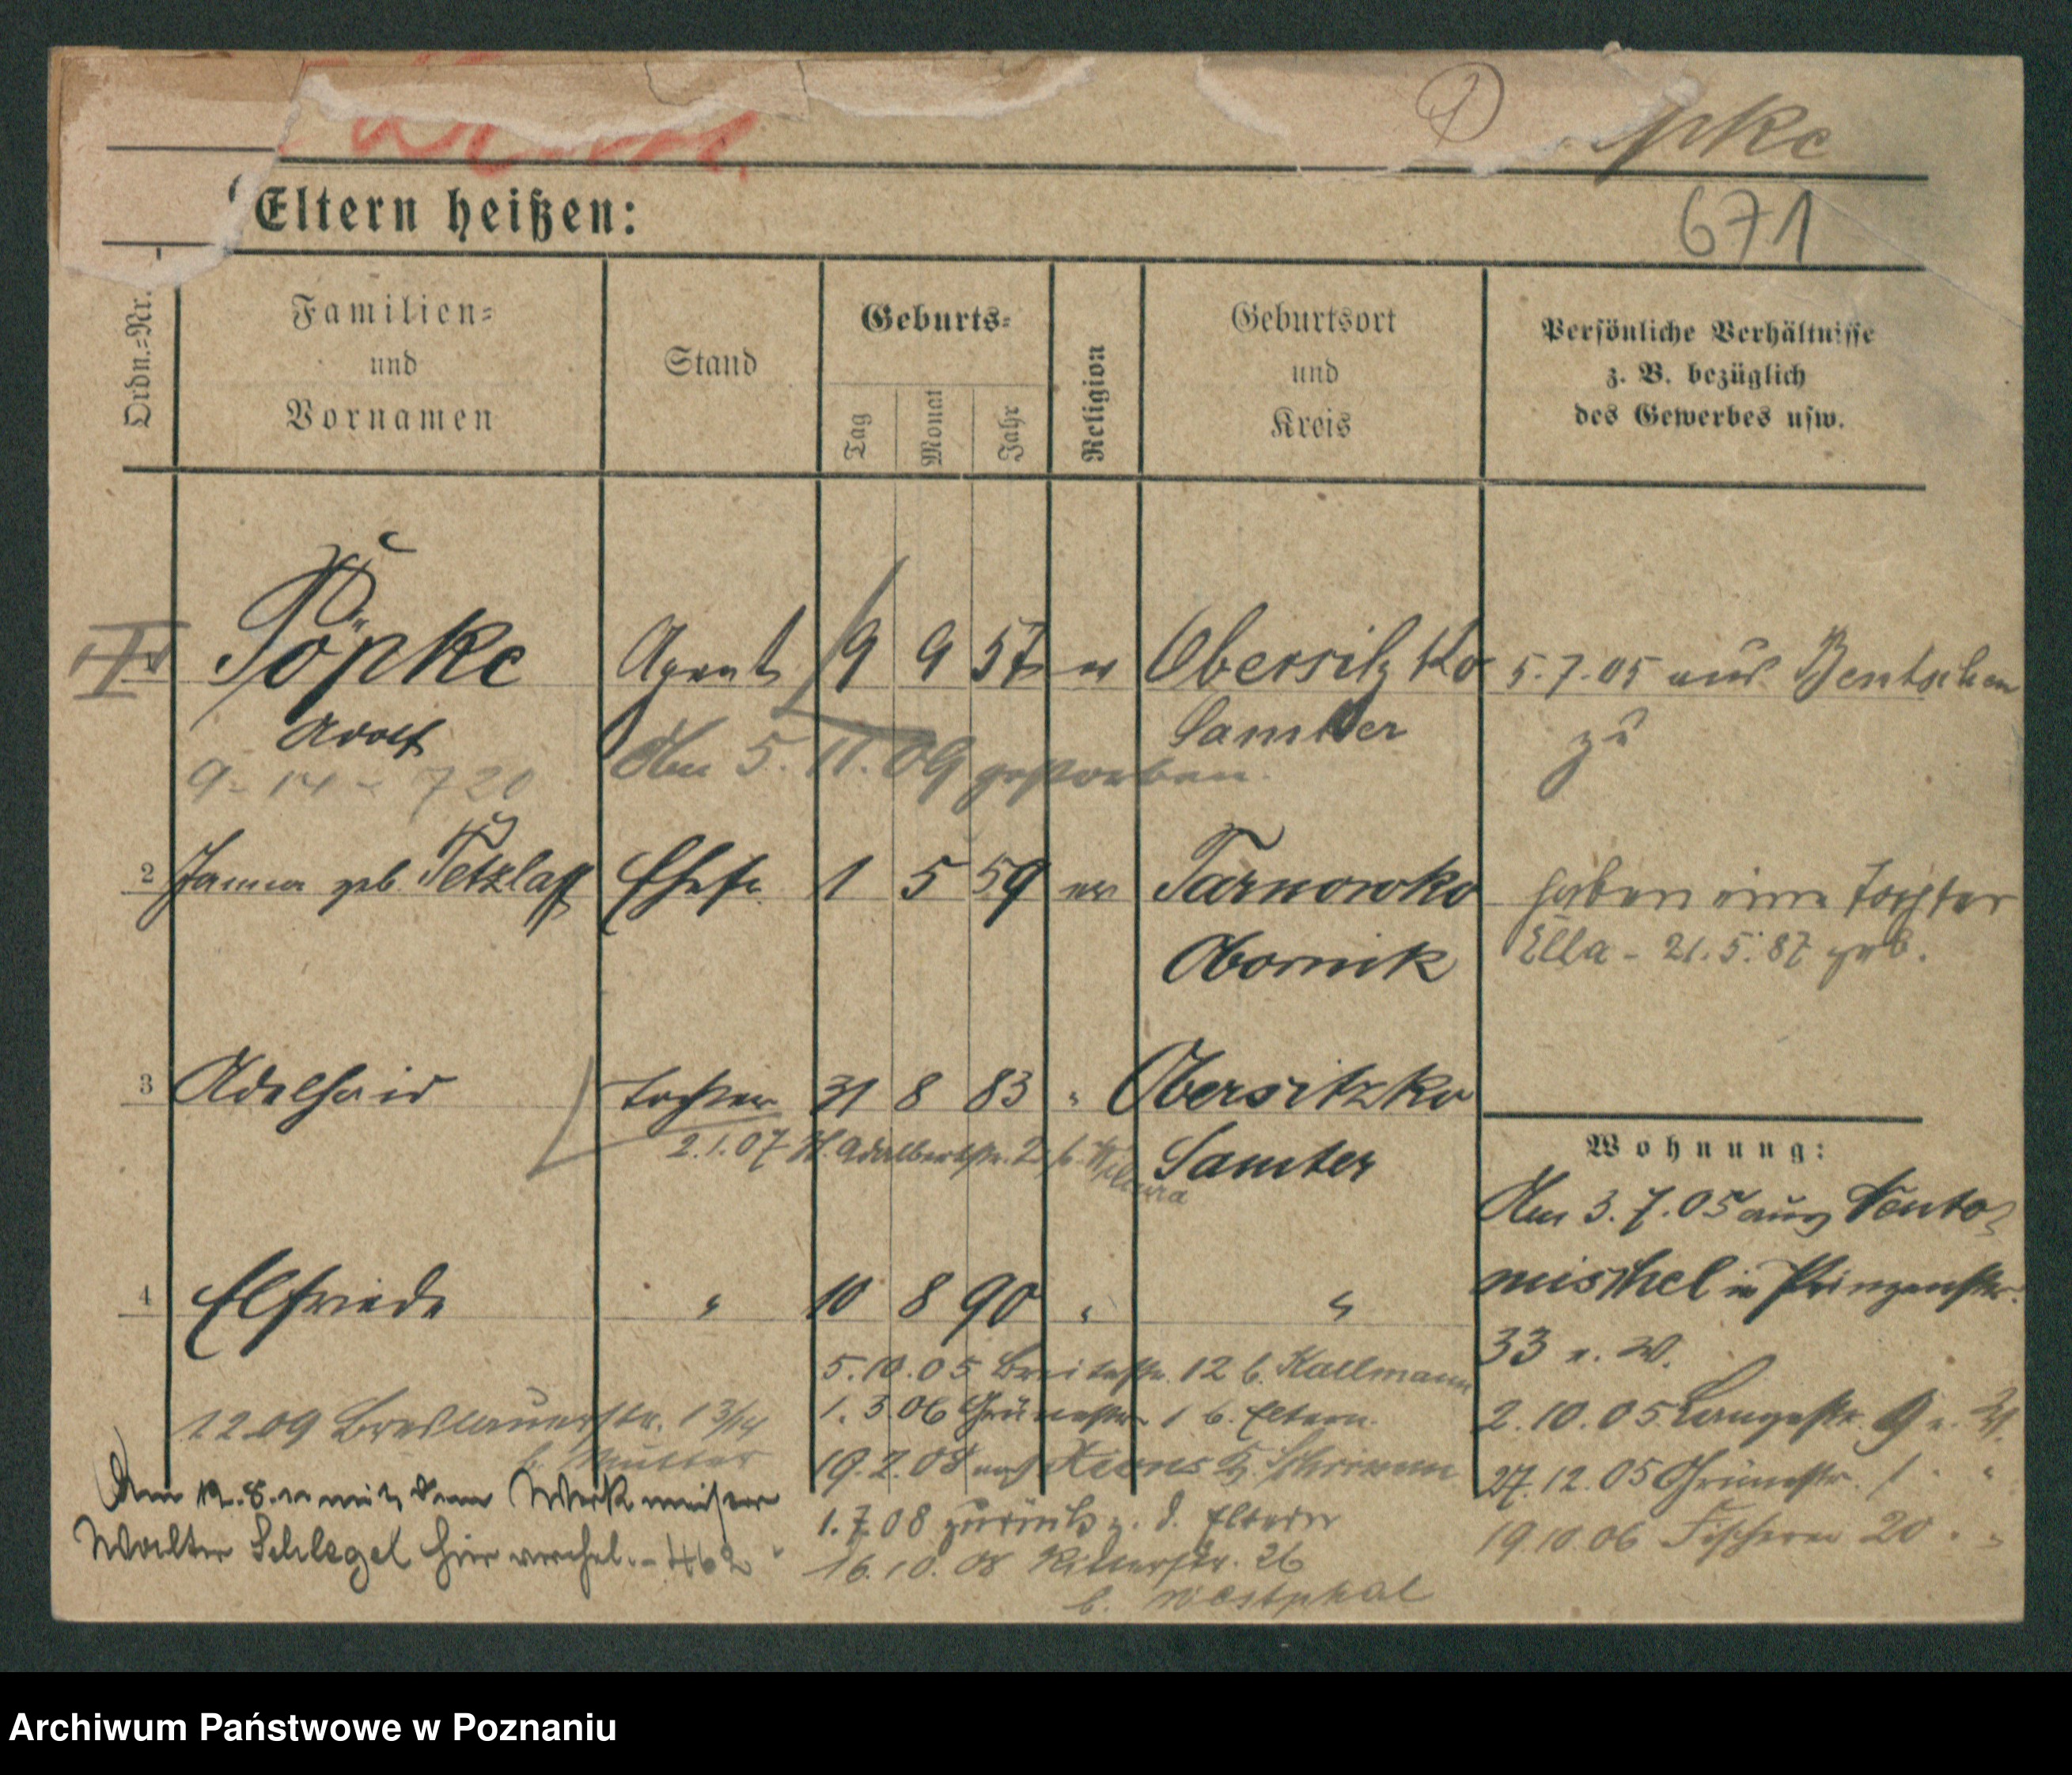 pke
671
Eltern heißen:
Ordn.-Nr.
Familien-
und
Vornamen
Stand
Geburts-
Tag
Monat
Jahr
Religion
Geburtsort
und
Kreis
Persönliche Verhältnisse
z. B. bezüglich
des Gewerbes usw.
Pöpke Agent 9 9 57 ev Obersitzko 5.7.05 aus Bentschen
Adolf Samter zu
9 - 14 - 720 Am 5.11.09 gestorben.
2 geb. Tetzlaff Ehefr. 1 5 59 ev Tarnowko haben eine Tochter
Obornik Ella - 21.5.87 geb.
3 Adelheid Tochter 31 8 83 " Obersitzko
2.1.07 Adalbertstr. 2 b. Samter
Wohnung:
Am 3.7.05 aus Neuto-
4 Elfriede " 10 8 90 " "
mischel in Prinzenstr.
33 n. W.
5.10.05 Breitestr. 12 b. Kallmann
1.3.06 Grünestr. 1 b. Eltern.
2.10.05 Langestr. 9 n. W.
12.09 Breslauerstr. 13/14
b. Mutter
19.2.08 nach Xions Kr. Schrimm
27.12.05 Grünestr. 1 " "
Am 12.8. mit dem Werkmeister
1.7.08 zurück z. d. Eltern
19.10.06 Fischerei 20 " "
Walter Schlegel hier verehel. - 462
16.10.08 Ritterstr. 26
b. Westphal
Archiwum Państwowe w Poznaniu